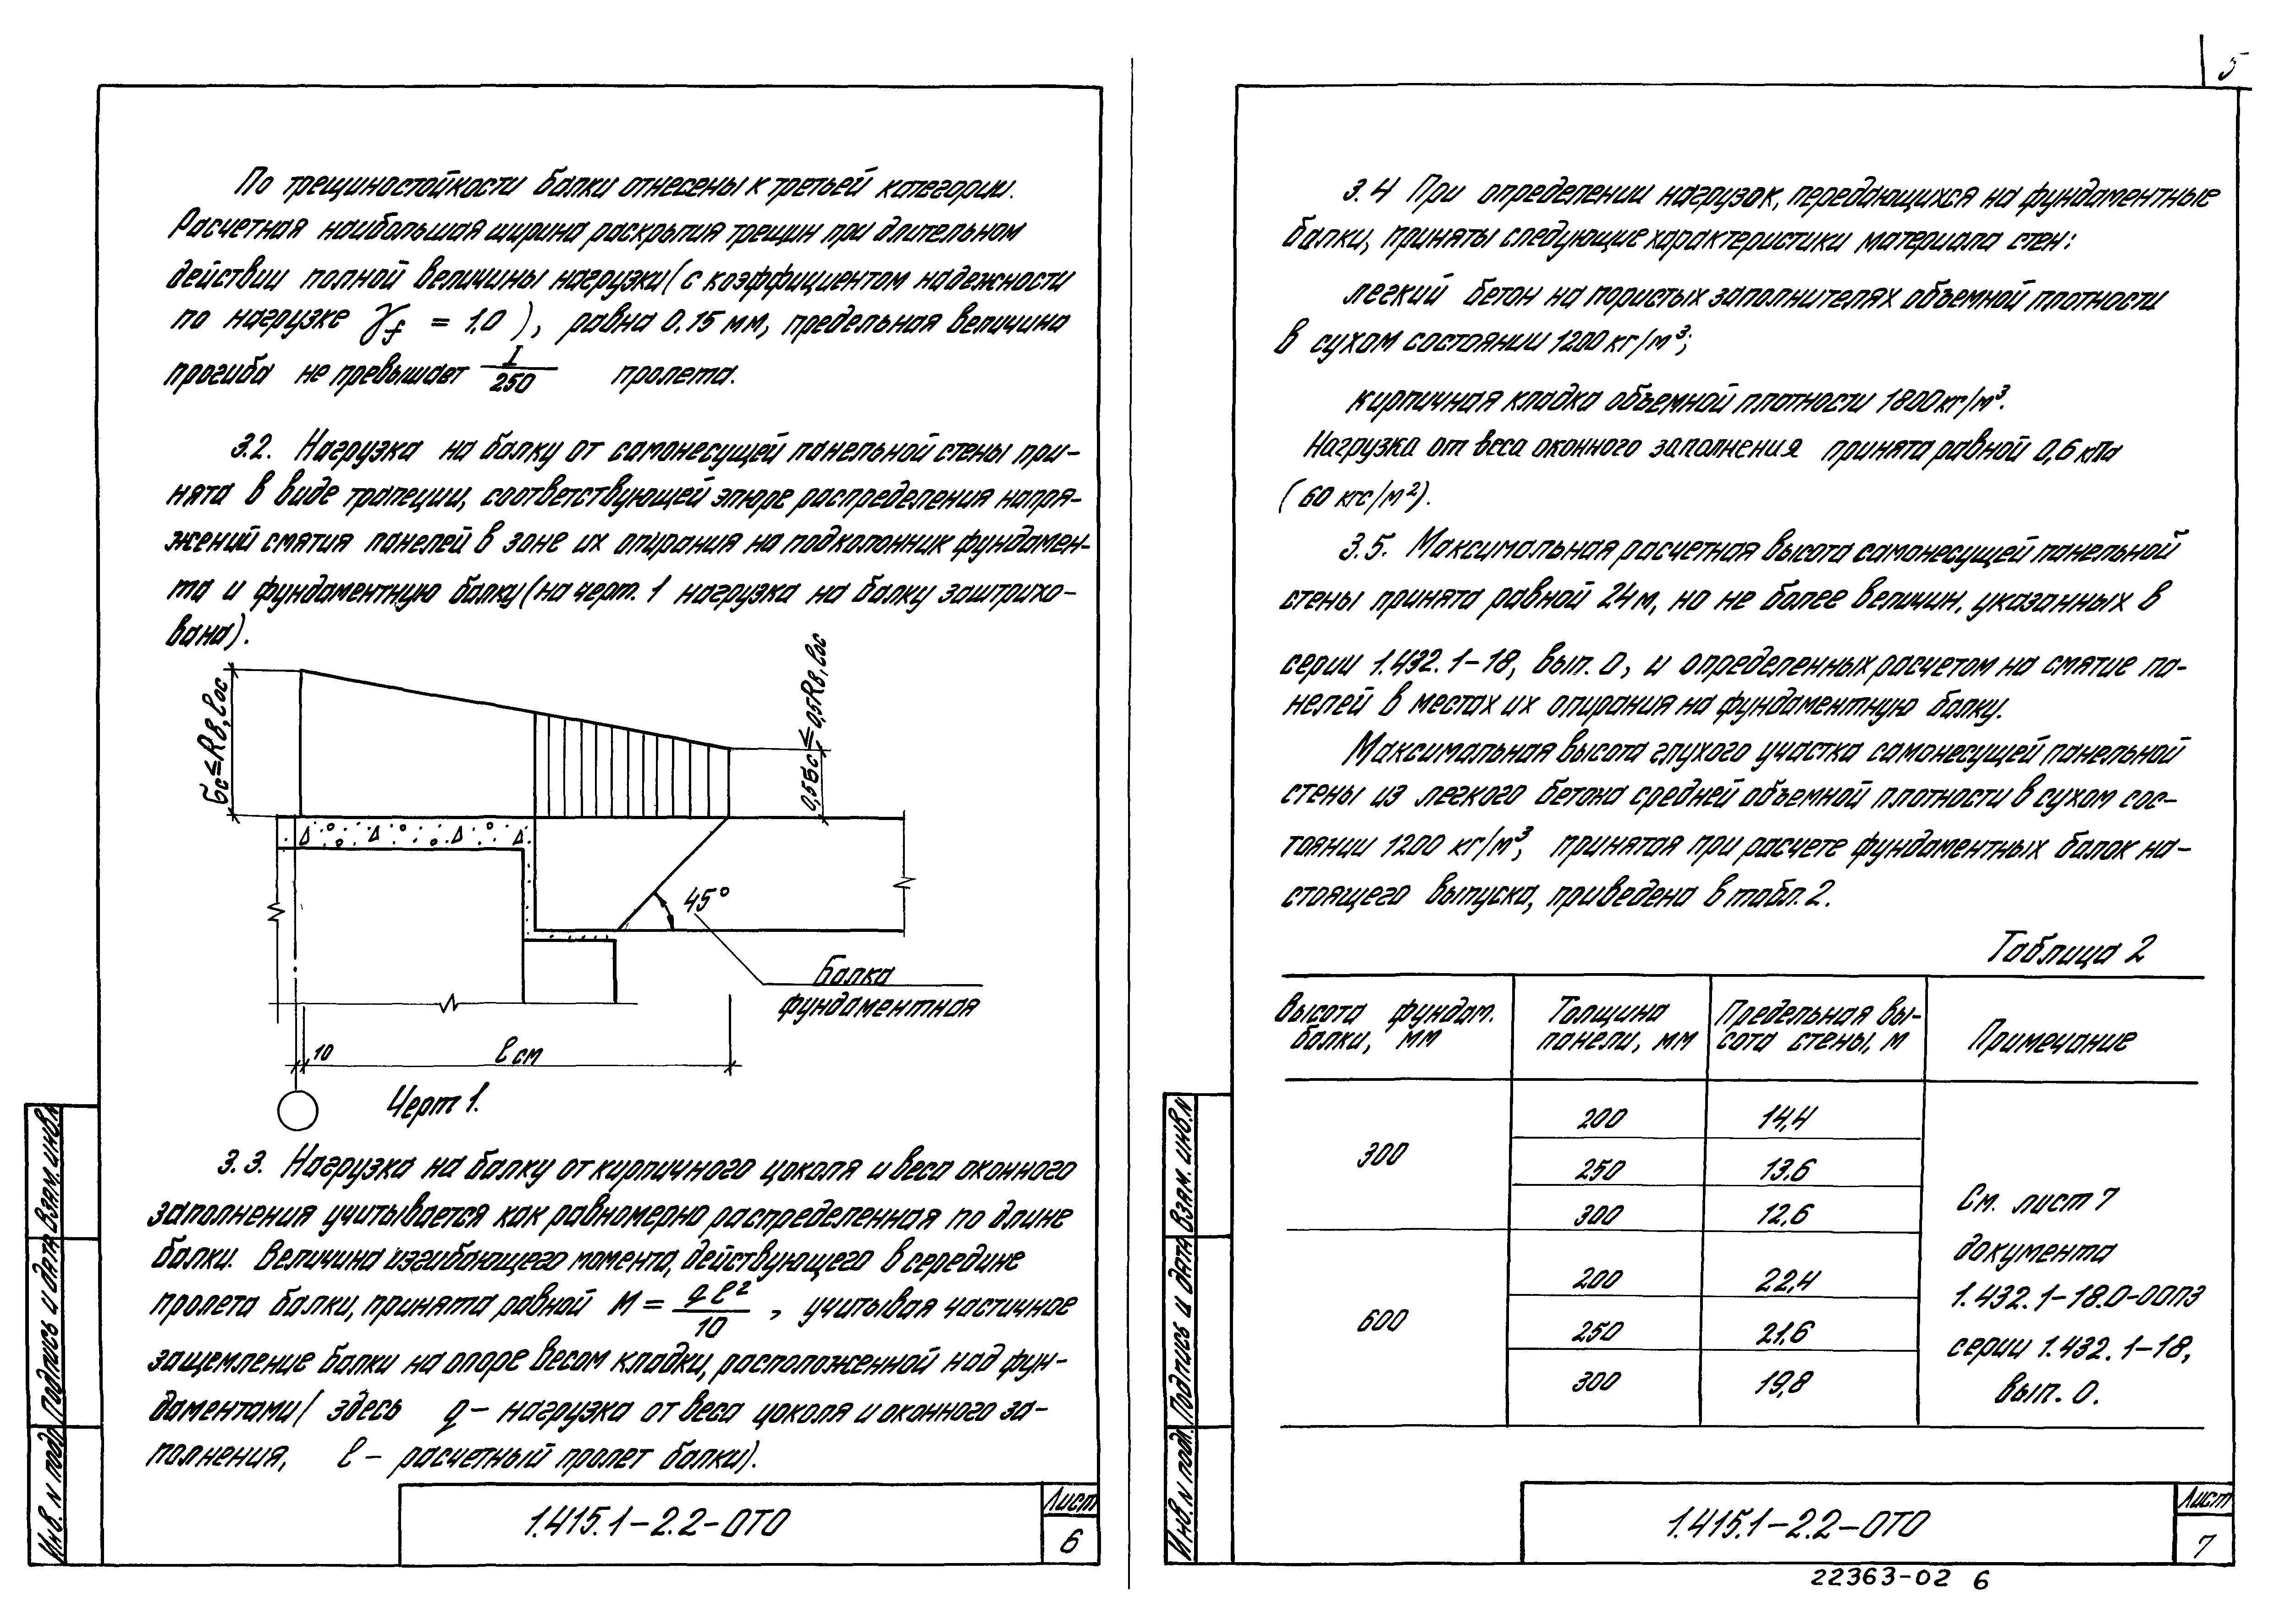 По трещиностойкости балки отнесены к третьей категории.
Расчетная наибольшая ширина раскрытия трещин при длительном
действии полной величины нагрузки (с коэффициентом надежности
по нагрузке γf = 1.0 ), равна 0.15 мм, предельная величина
прогиба не превышает I/250 пролета.
3.2. Нагрузка на балку от самонесущей панельной стены при-
нята в виде трапеции, соответствующей эпюре распределения напря-
жений смятия панелей в зоне их опирания на подколонник фундамен-
та и фундаментную балку (на черт. 1 нагрузка на балку заштрихо-
вана).
бс ≤ Rв, loc
0,5бс ≤ 0,5Rв, loc
45°
Балка
фундаментная
10
l см
Черт 1.
3.3. Нагрузка на балку от кирпичного цоколя и веса оконного
заполнения учитывается как равномерно распределенная по длине
балки. Величина изгибающего момента, действующего в середине
пролета балки, принята равной М = ql²/10 , учитывая частичное
защемление балки на опоре весом кладки, расположенной над фун-
даментами ( здесь q – нагрузка от веса цоколя и оконного за-
полнения, l – расчетный пролет балки).
1.415.1–2.2–0ТО
Лист
6
Инв. N подл.
Подпись и дата
Взам. инв. N
5
3.4 При определении нагрузок, передающихся на фундаментные
балки, приняты следующие характеристики материала стен:
легкий бетон на пористых заполнителях объемной плотности
в сухом состоянии 1200 кг/м³;
кирпичная кладка объемной плотности 1800 кг/м³.
Нагрузка от веса оконного заполнения принята равной 0,6 кПа
( 60 кгс/м²).
3.5. Максимальная расчетная высота самонесущей панельной
стены принята равной 24 м, но не более величин, указанных в
серии 1.432.1–18, вып. 0, и определенных расчетом на смятие па-
нелей в местах их опирания на фундаментную балку.
Максимальная высота глухого участка самонесущей панельной
стены из легкого бетона средней объемной плотности в сухом сос-
тоянии 1200 кг/м³, принятая при расчете фундаментных балок на-
стоящего выпуска, приведена в табл. 2.
Таблица 2
Высота фундам. балки, мм
Толщина панели, мм
Предельная вы-сота стены, м
Примечание
300
200 14,4
250 13.6
300 12,6
600
200 22,4
250 21,6
300 19,8
См. лист 7
документа
1.432.1–18.0–00ПЗ
серии 1.432.1–18,
вып. 0.
1.415.1–2.2–0ТО
Лист
7
Инв. N подл.
Подпись и дата
Взам. инв. N
22363-02 6